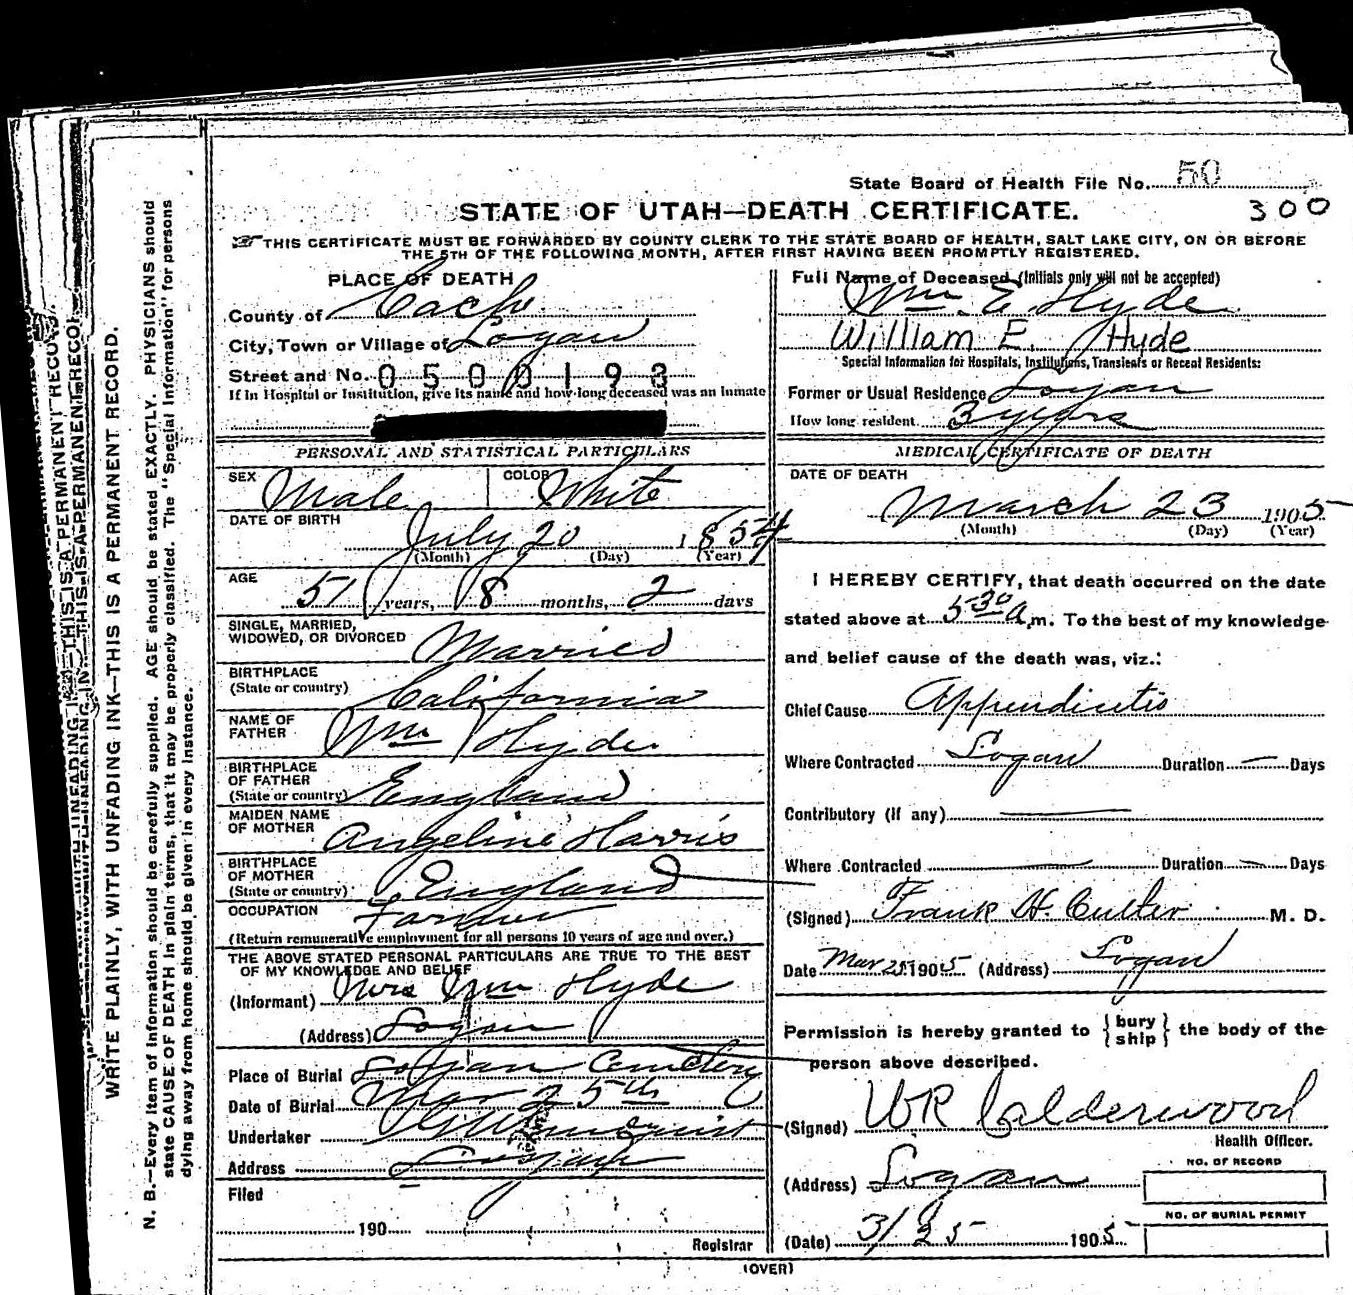 State Board of Health File No. 50
300
STATE OF UTAH—DEATH CERTIFICATE.
THIS CERTIFICATE MUST BE FORWARDED BY COUNTY CLERK TO THE STATE BOARD OF HEALTH, SALT LAKE CITY, ON OR BEFORE
THE 5TH OF THE FOLLOWING MONTH, AFTER FIRST HAVING BEEN PROMPTLY REGISTERED.
PLACE OF DEATH
County of Cache
City, Town or Village of Logan
Street and No. 0500193
If in Hospital or Institution, give its name and how long deceased was an inmate
Full Name of Deceased (Initials only will not be accepted)
Wm. E Hyde
William E. Hyde
Special Information for Hospitals, Institutions, Transients or Recent Residents:
Former or Usual Residence Logan
How long resident 3 years
PERSONAL AND STATISTICAL PARTICULARS
SEX Male COLOR White
DATE OF BIRTH
July 20 1854
(Month) (Day) (Year)
AGE
51 years, 8 months, 2 days
SINGLE, MARRIED,
WIDOWED, OR DIVORCED Married
BIRTHPLACE
(State or country) California
NAME OF
FATHER Wm Hyde
BIRTHPLACE
OF FATHER
(State or country) England
MAIDEN NAME
OF MOTHER Angeline Harris
BIRTHPLACE
OF MOTHER
(State or country) England
OCCUPATION Farmer
(Return remunerative employment for all persons 10 years of age and over.)
THE ABOVE STATED PERSONAL PARTICULARS ARE TRUE TO THE BEST
OF MY KNOWLEDGE AND BELIEF
(Informant) Mrs Wm Hyde
(Address) Logan
Place of Burial Logan Cemetery
Date of Burial Mar 25th
Undertaker
Address Logan
Filed
190
Registrar
MEDICAL CERTIFICATE OF DEATH
DATE OF DEATH
March 23 1905
(Month) (Day) (Year)
I HEREBY CERTIFY, that death occurred on the date
stated above at 5 30 A.m. To the best of my knowledge
and belief cause of the death was, viz.:
Chief Cause Appendicitis
Where Contracted Logan Duration — Days
Contributory (if any) —
Where Contracted — Duration — Days
(Signed) Frank H. Culter M. D.
Date Mar 25 1905 (Address) Logan
Permission is hereby granted to { bury
ship } the body of the
person above described.
(Signed) WR Calderwood
Health Officer.
(Address) Logan
NO. OF RECORD
NO. OF BURIAL PERMIT
(Date) 3/25 1905
(OVER)
WRITE PLAINLY, WITH UNFADING INK—THIS IS A PERMANENT RECORD.
N. B.—Every item of information should be carefully supplied. AGE should be stated EXACTLY. PHYSICIANS should
state CAUSE OF DEATH in plain terms, that it may be properly classified. The "Special Information" for persons
dying away from home should be given in every instance.